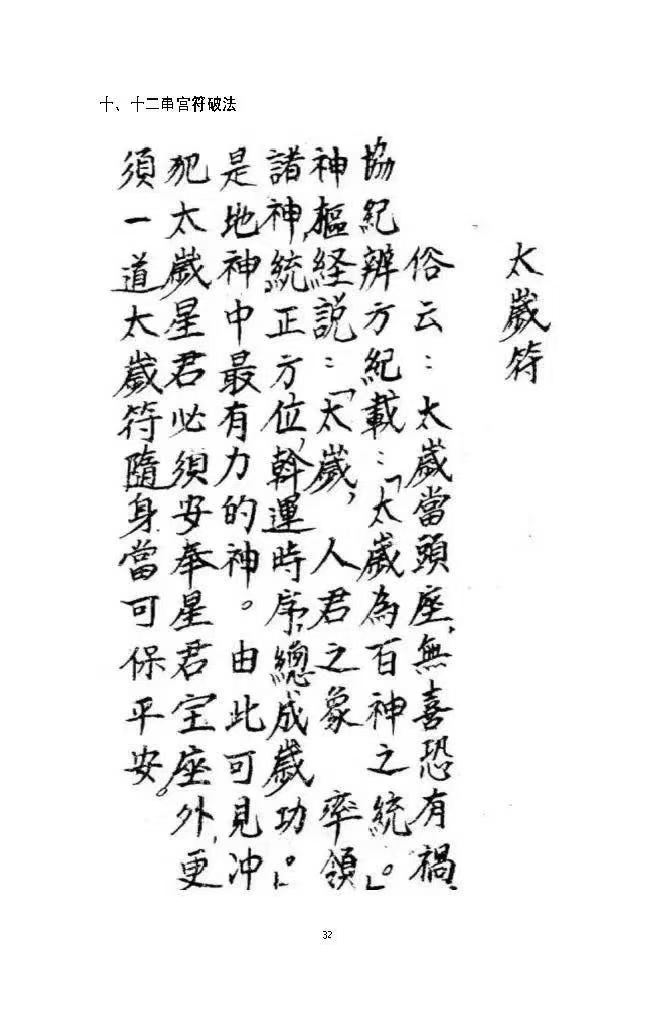 十、十二串宫符破法
太歲符
俗云：太歲當頭座，無喜恐有禍，
協紀辨方紀載：「太歲為百神之統。」
神樞経説：「太歲，人君之象 率領
諸神，統正方位，斡運時序，總成歲功。」
是地神中最有力的神。由此可見冲
犯太歲星君必須安奉星君宝座外，更
須一道太歲符隨身當可保平安。
32